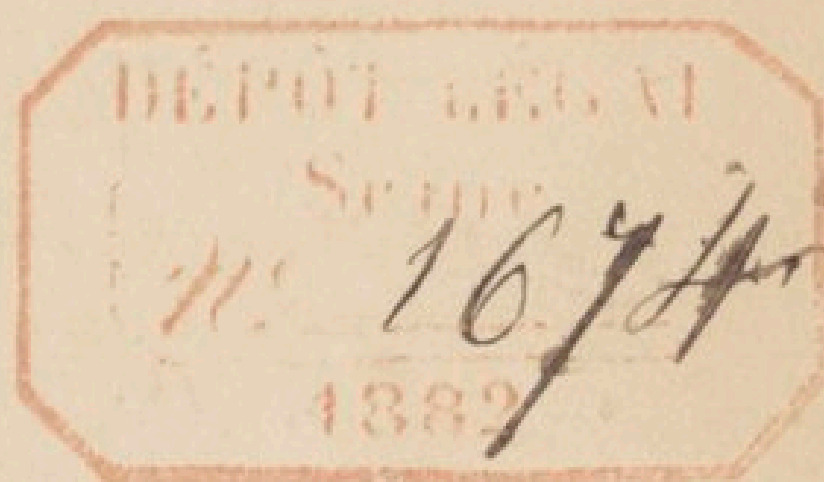 DÉPÔT LÉGAL
Seine
N.º 1674
1882